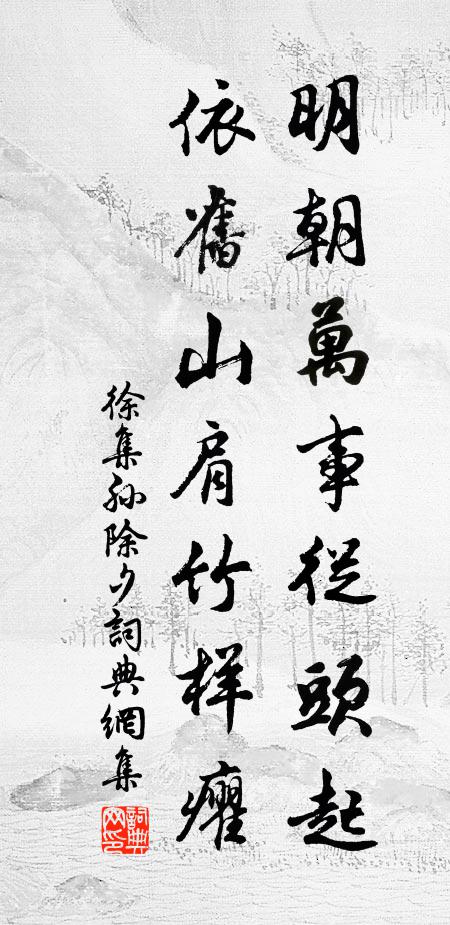 明朝萬事從頭起
依舊山肩竹样癯
徐集孙除夕詞典網集